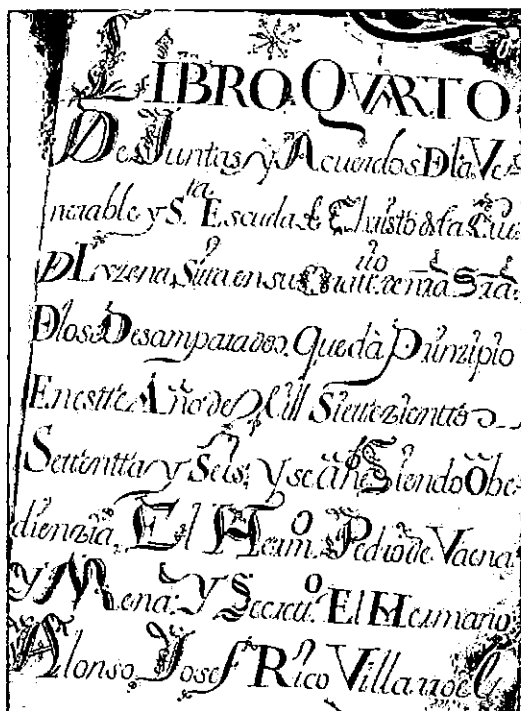 LIBRO QVARTO
De Juntas y Acuerdos D la Ve-
nerable y S.ta Escuela de Christo de sta Ciu.
D Luzena, Sita en su
D los Desamparados. Que dà Prinzipio
En estte Año de Mill Siettezienttos
Settentta y Seis; y Siendo Obe-
dienzia. El Herm.o Pedro de Vaena
y Mena: Y Secret.o El Hermano
Alonso Josef Rico Villarroel